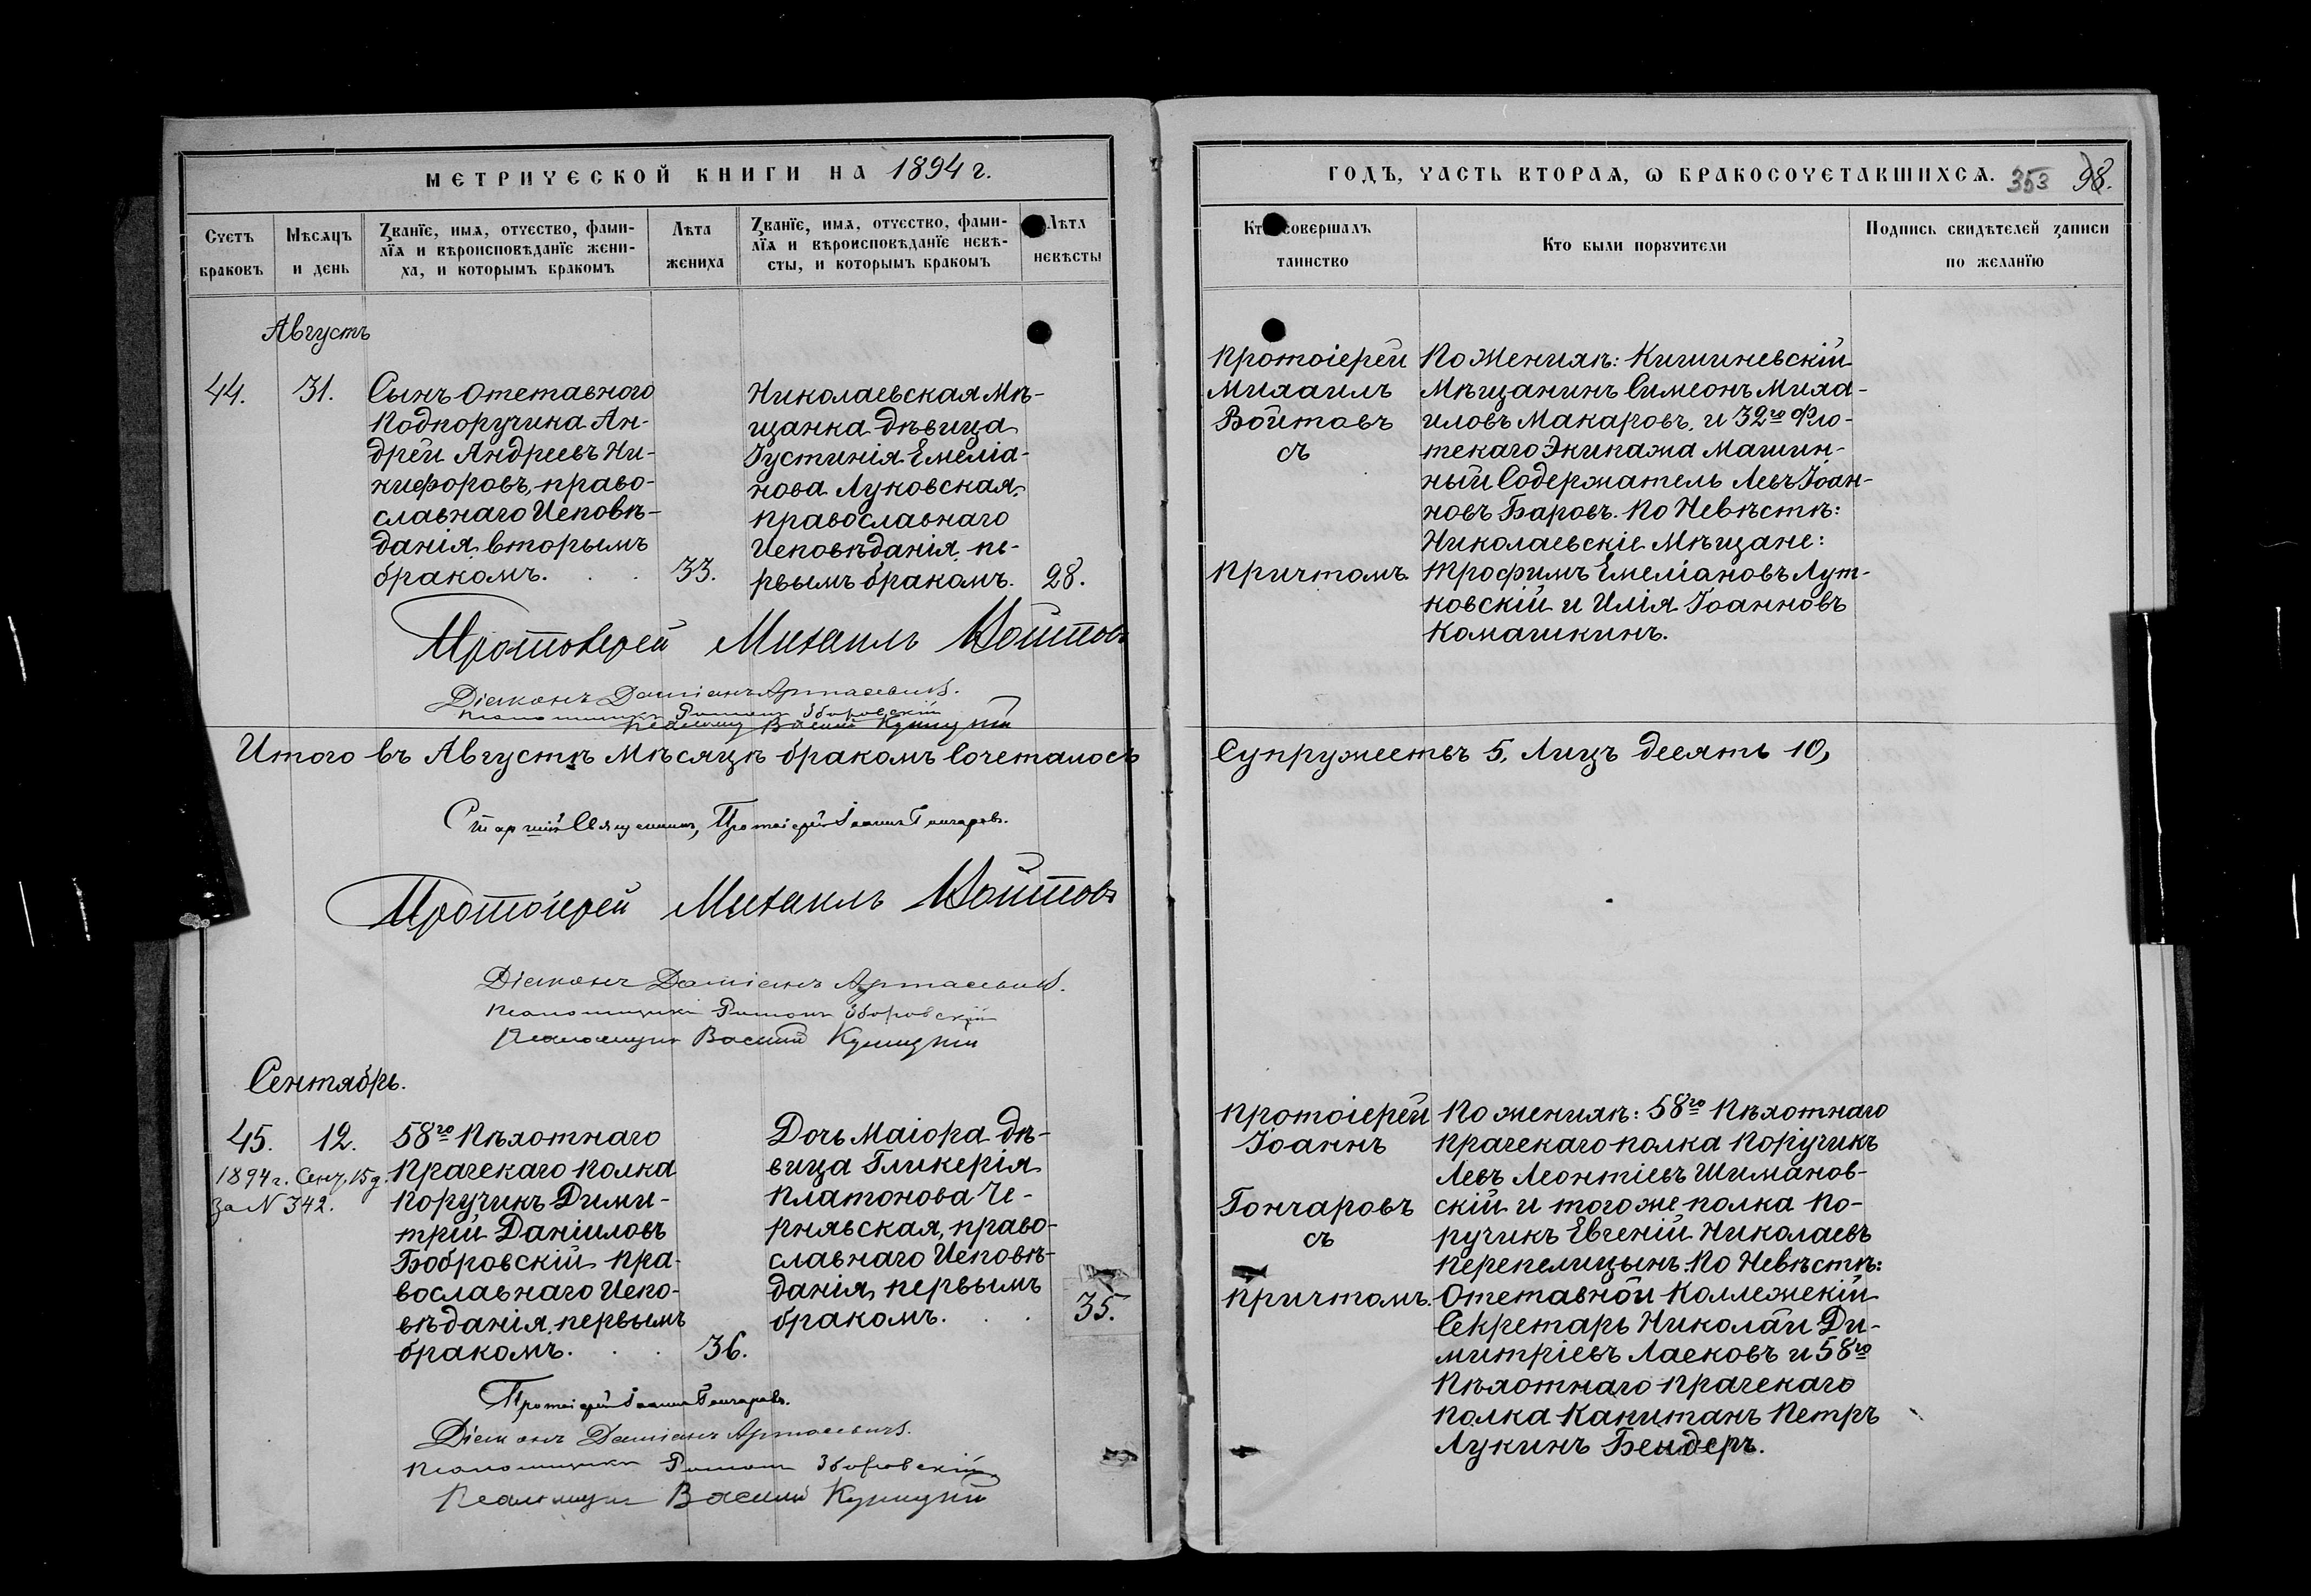 МЕТРИЧЕСКОЙ КНИГИ НА 1894 г.
Счетъ браковъ
Мѣсяцъ и день
Званїе, имя, отчество, фами-
лїя и вѣроисповѣданїе жени-
ха, и которымъ бракомъ
Лѣта жениха
Званїе, имя, отчество, фами-
лїя и вѣроисповѣданїе невѣ-
сты, и которымъ бракомъ
Лѣта невѣсты
Августъ
44.
31.
Сынъ Отставного
Подпоручика Ан-
дрей Андреевъ Ни-
кифоровъ, право-
славнаго Исповѣ-
данія, вторымъ
бракомъ. . .
33.
Николаевская Мѣ-
щанка дѣвица
Іустинія Емеліа-
нова Луковская,
православнаго
Исповѣданія, пе-
рвымъ бракомъ.
28.
Протоіерей Михаилъ Войтовъ
Діаконъ Даміанъ Артасевичъ.
Псаломщикъ Романъ Зборовскій
Псаломщ Василій Куницкій
Итого въ Августѣ Мѣсяцѣ бракомъ Сочеталось
Старшій Священникъ, Протоіерей Іоаннъ Гончаровъ.
Протоіерей Михаилъ Войтовъ
Діаконъ Даміанъ Артасевичъ.
Псаломщикъ Романъ Зборовскій
Псаломщикъ Василій Куницкій
Сентябрь.
45.
12.
1894 г. Сент. 15 д.
за N 342.
58го Пѣхотнаго
Прагскаго полка
Поручикъ Дими-
трій Даніиловъ
Бобровскій пра-
вославнаго Испо-
вѣданія, первымъ
бракомъ. . .
36.
Дочь Маіора дѣ-
вица Гликерія
Платонова Че-
рнявская, право-
славнаго Исповѣ-
данія, первымъ
бракомъ. . .
35.
Протоіерей Іоаннъ Гончаровъ.
Діаконъ Даміанъ Артасевичъ.
Псаломщикъ Романъ Зборовскій
Псаломщикъ Василій Куницкій
ГОДЪ, ЧАСТЬ ВТОРАЯ, Ѡ БРАКОСОЧЕТАВШИХСЯ.
353 98.
Кто совершалъ таинство
Кто были поручители
Подпись свидѣтелей записи
по желанїю
Протоіерей
Михаилъ
Войтовъ
съ
Причтомъ.
По Женихѣ: Кишиневскій
Мѣщанинъ Симеонъ Миха-
иловъ Макаровъ, и 32го Фло-
тскаго Экипажа Машин-
ный Содержатель Левъ Іоан-
новъ Баровъ. По Невѣстѣ:
Николаевскіе Мѣщане:
Трофимъ Емеліановъ Лут-
ковскій и Илія Іоанновъ
Комашкинъ.
Супружествъ 5, Лицъ десять 10,
Протоіерей
Іоаннъ
Гончаровъ
съ
Причтомъ.
По женихѣ: 58го Пѣхотнаго
Прагскаго полка Поручикъ
Левъ Леонтіевъ Шиманов-
скій и того же полка По-
ручикъ Евгеній Николаевъ
Перепелицынъ. По Невѣстѣ:
Отставной Коллежскій
Секретарь Николай Ди-
митріевъ Ласковъ и 58го
Пѣхотнаго Прагскаго
полка Капитанъ Петръ
Лукинъ Бендеръ.